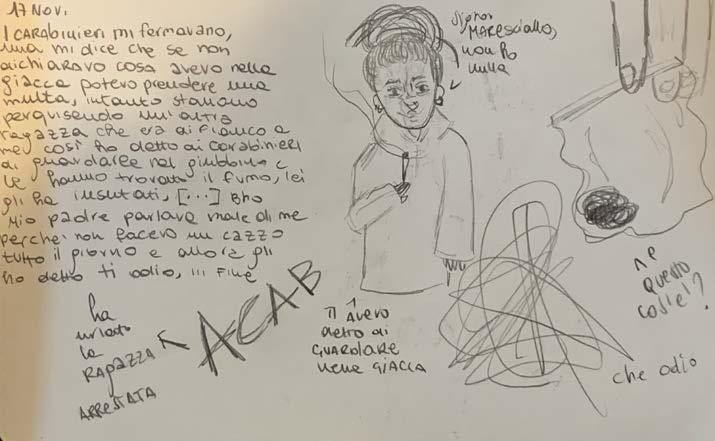 17 NOV.
I CARABINIERI mi fermavano,
una mi dice che se non
dichiaravo cosa avevo nella
giacca potevo prendere una
multa, intanto stavano
perquisendo un'altra
ragazza che era di fianco a
me, così ho detto ai carabinieri
di guardarle nel giubbino e
le hanno trovato il fumo, lei
gli ha insultati, [...] Bho
Mio padre parlava male di me
perché non facevo un cazzo
tutto il giorno e allora gli
ho detto ti odio, ... Fine
Signor
MARESCIALLO,
non ho
nulla
he
questo
cos'è!?
che odio
TI AVEVO
detto di
GUARDARE
nella GIACCA
ACAB
ha
urlato
la
RAGAZZA
ARRESTATA